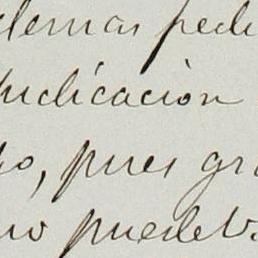 demas pedi
indicación
o, pues gra
no puede V.